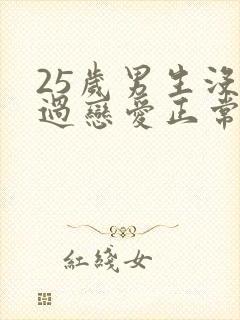 25歲男生沒
過戀愛正常
紅綫女